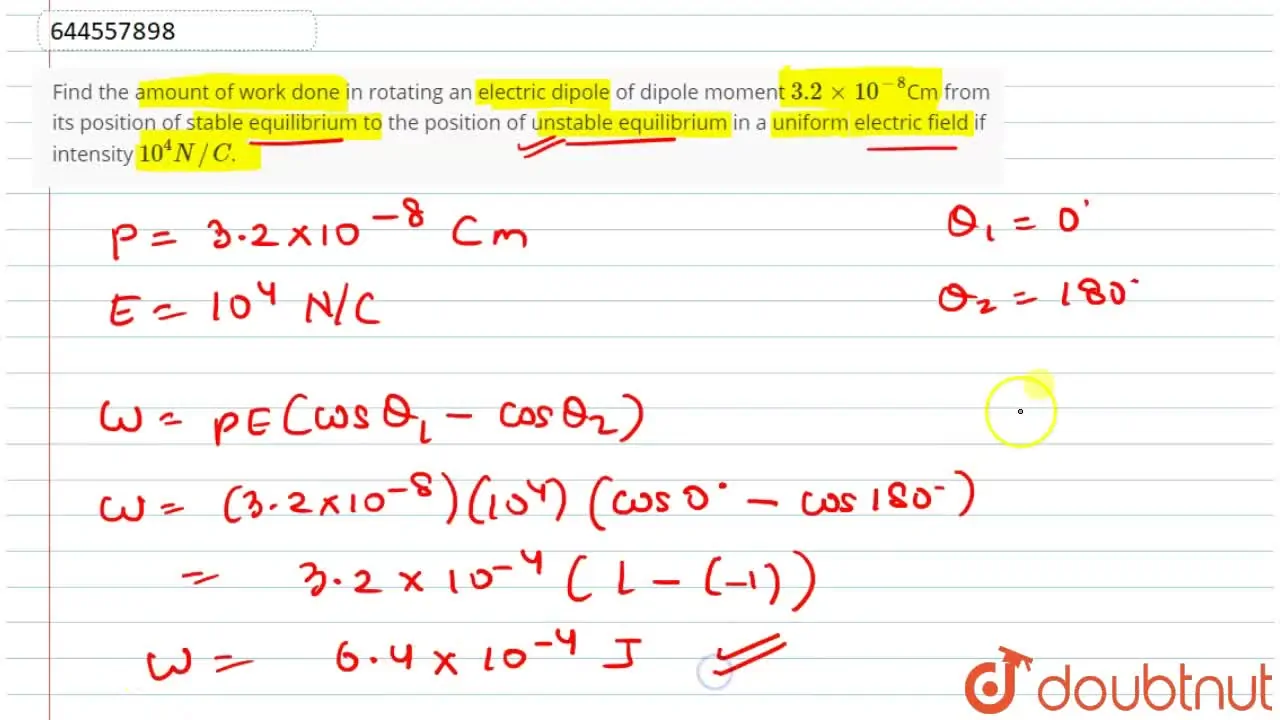 644557898
Find the amount of work done in rotating an electric dipole of dipole moment 3.2 × 10⁻⁸Cm from
its position of stable equilibrium to the position of unstable equilibrium in a uniform electric field if
intensity 10⁴N/C.
P = 3.2×10⁻⁸ Cm
θ₁ = 0°
E = 10⁴ N/C
θ₂ = 180°
W = PE(cosθ₁ - cosθ₂)
W = (3.2×10⁻⁸)(10⁴)(cos0° - cos180°)
= 3.2×10⁻⁴(1-(-1))
W = 6.4×10⁻⁴ J
doubtnut